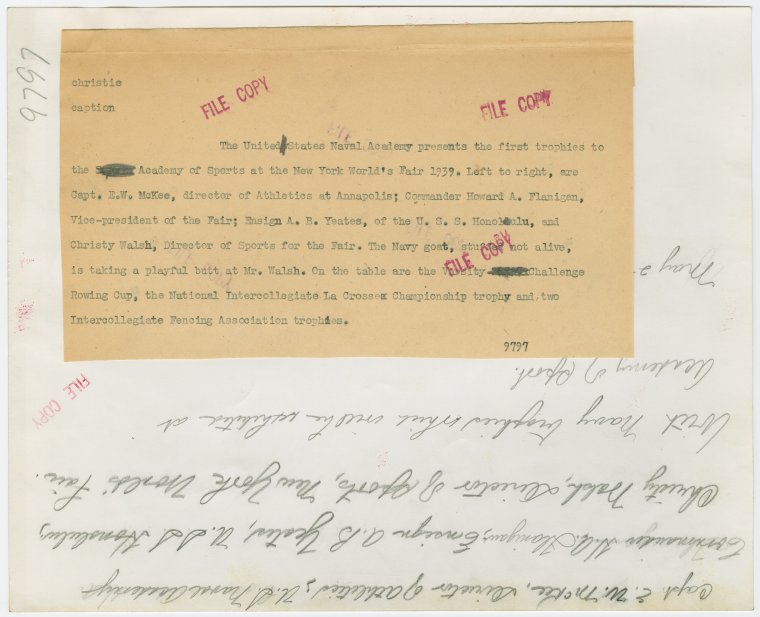 9797
christie
caption
FILE COPY
FILE COPY
The United States Naval Academy presents the first trophies to
the Academy of Sports at the New York World's Fair 1939. Left to right, are
Capt. E.W. McKee, director of Athletics at Annapolis; Commander Howard A. Flanigan,
Vice-president of the Fair; Ensign A. B. Yeates, of the U. S. S. Honolulu, and
Christy Walsh, Director of Sports for the Fair. The Navy goat, stuffed not alive,
is taking a playful butt at Mr. Walsh. On the table are the Varsity Challenge
Rowing Cup, the National Intercollegiate La Crossex Championship trophy and two
Intercollegiate Fencing Association trophies.
9797
FILE COPY
FILE COPY
Capt. E. W. McKee, Director of Athletics, U.S. Naval Academy
Commander H.A. Flanigan, Ensign A.B. Yeates, U.S.S. Honolulu,
Christy Walsh, Director of Sports, New York World's Fair.
With Navy trophies which will be exhibited at
Academy of Sport.
May 2